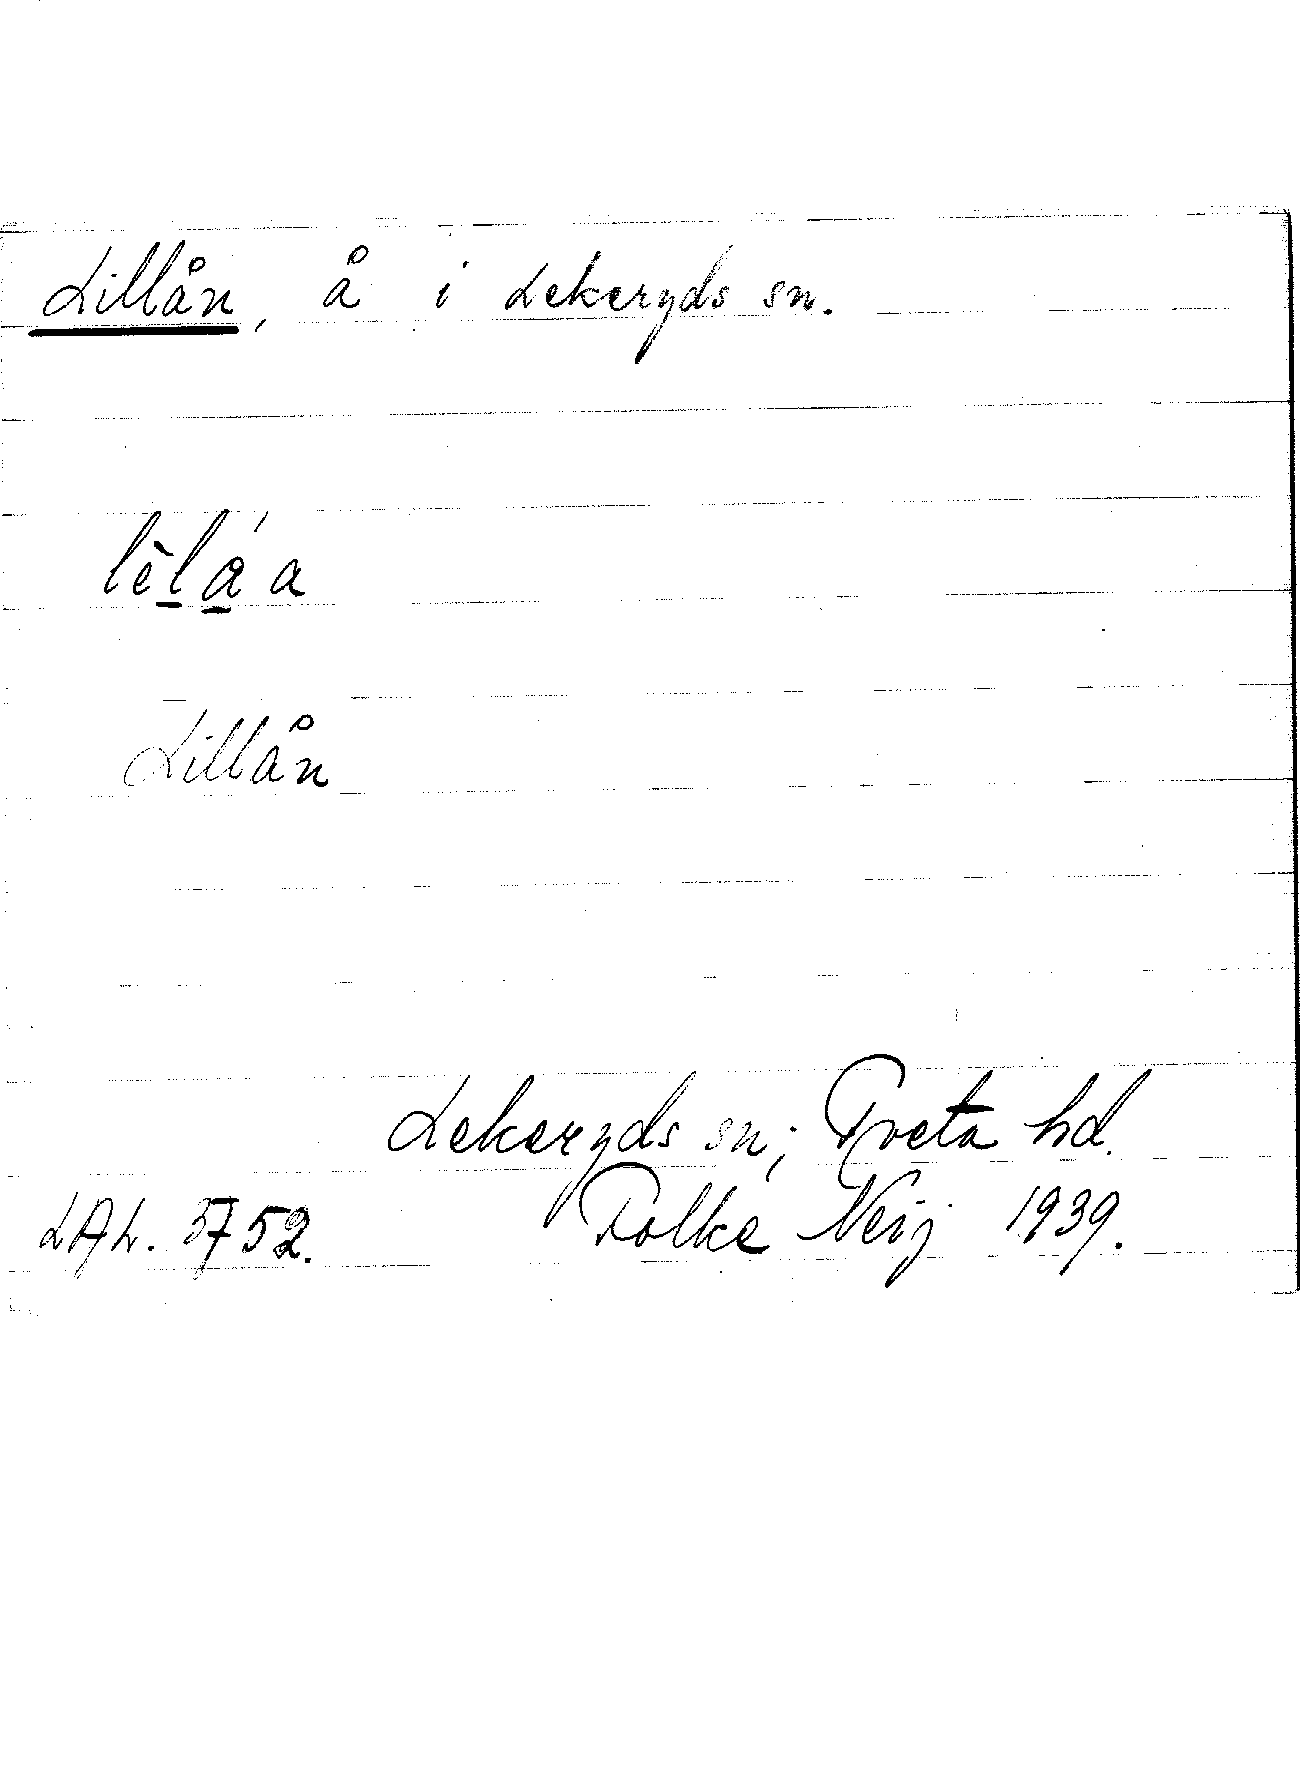 Lillån, å i Lekeryds sn.
lèlá a
Lillån
Lekeryds sn; Tveta hd.
LAL. 3752. Folke Neij 1939.